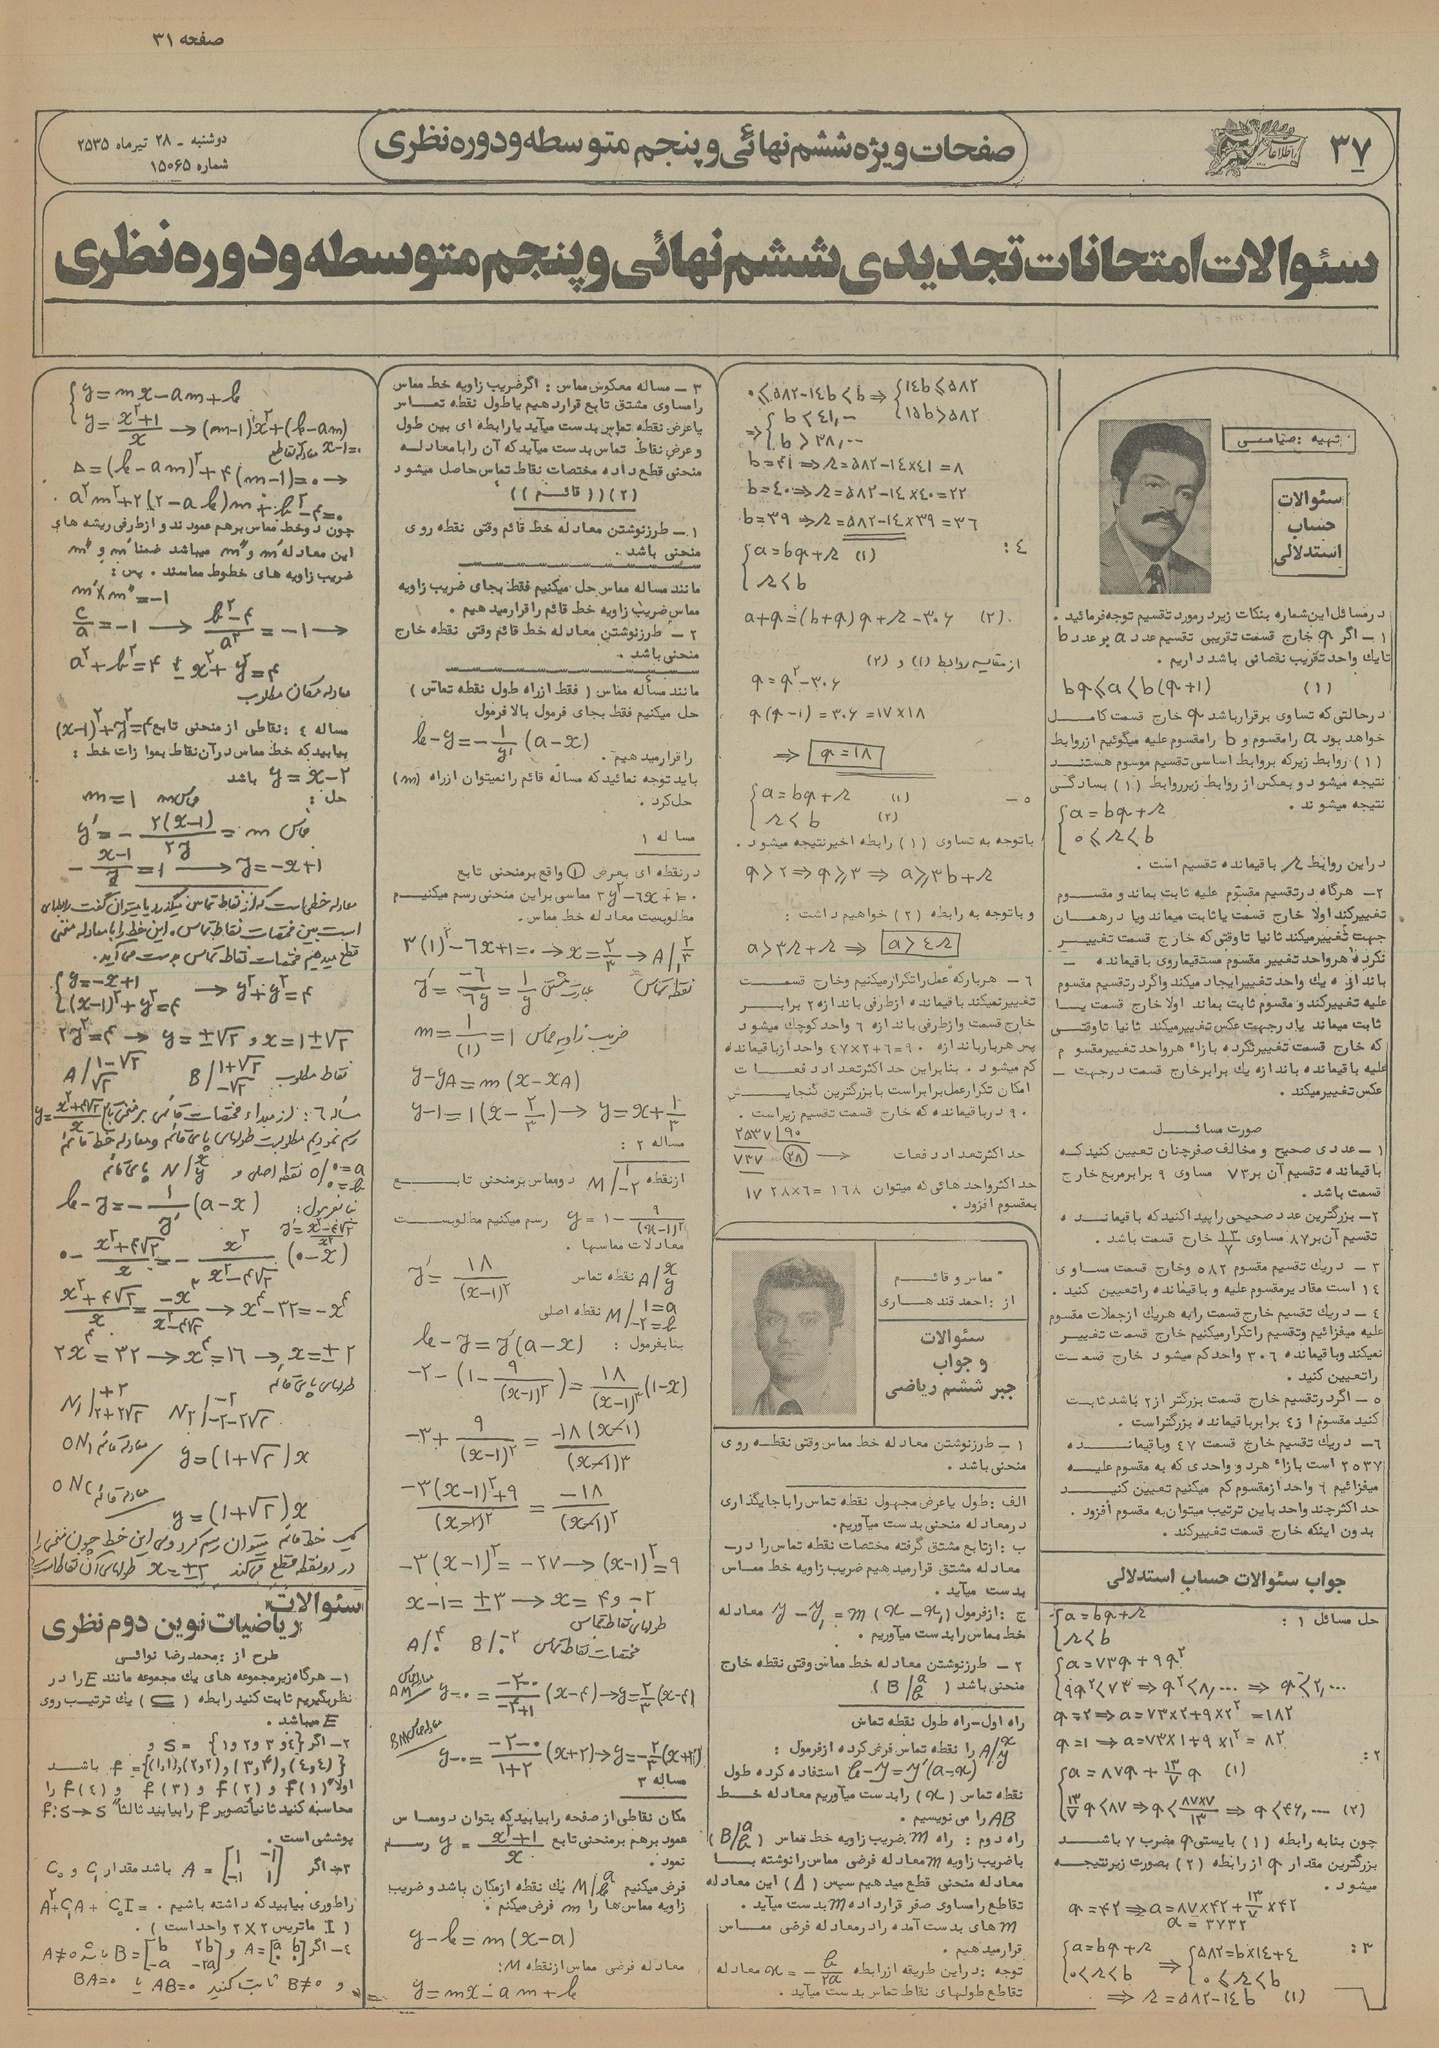 صفحه ۳۱
۳۷
اطلاعات
صفحات ویژه ششم نهائی و پنجم متوسطه و دوره نظری
دوشنبه ـ ۲۸ تیرماه ۲۵۳۵
شماره ۱۵۰۶۵
سئوالات امتحانات تجدیدی ششم نهائی و پنجم متوسطه و دوره نظری
تهیه :
سئوالات
حساب
استدلالی
در مسائل این شماره بنکات زیر در مورد تقسیم توجه فرمائید .
۱ ـ اگر q خارج قسمت تقریبی تقسیم عدد a بر عدد b
تا یك واحد تقریب نقصانی باشد داریم .
bq ⩽ a < b(q+1) (۱)
در حالتی که تساوی برقرار باشد q خارج قسمت کامل
خواهد بود a را مقسوم و b را مقسوم علیه میگوئیم از روابط
(۱) روابط زیر که بروابط اساسی تقسیم موسوم هستند
نتیجه میشود و بعکس از روابط زیر روابط (۱) بسادگی
نتیجه میشوند .
a = bq + r
0 ⩽ r < b
در این روابط r باقیمانده تقسیم است .
۲ـ هرگاه در تقسیم مقسوم علیه ثابت بماند و مقسوم
تغییر کند اولا خارج قسمت یا ثابت میماند و یا در همان
جهت تغییر میکند ثانیا تا وقتی که خارج قسمت تغییر
نکرده هر واحد تغییر مقسوم مستقیما روی باقیمانده
باندازه یك واحد تغییر ایجاد میکند واگر در تقسیم مقسوم
علیه تغییر کند و مقسوم ثابت بماند اولا خارج قسمت یا
ثابت میماند یا در جهت عکس تغییر میکند ثانیا تا وقتی
که خارج قسمت تغییر نکرده بازاء هر واحد تغییر مقسوم
علیه باقیمانده باندازه یك برابر خارج قسمت در جهت
عکس تغییر میکند .
صورت مسائل
۱ ـ عددی صحیح و مخالف صفر چنان تعیین کنید که
باقیمانده تقسیم آن بر ۷۳ مساوی ۹ برابر مربع خارج
قسمت باشد .
۲ـ بزرگترین عدد صحیحی را پیدا کنید که باقیمانده
تقسیم آن بر ۸۷ مساوی ۱۳/۷ خارج قسمت باشد .
۳ ـ در یك تقسیم مقسوم ۵۸۲ و خارج قسمت مساوی
۱۴ است مقادیر مقسوم علیه و باقیمانده را تعیین کنید .
۴ ـ در یك تقسیم خارج قسمت را به هر یك از جملات مقسوم
علیه میفزائیم و تقسیم را تکرار میکنیم خارج قسمت تغییر
نمیکند و باقیمانده ۳۰۶ واحد کم میشود خارج قسمت
را تعیین کنید .
۵ ـ اگر در تقسیم خارج قسمت بزرگتر از ۲ باشد ثابت
کنید مقسوم از ۴ برابر باقیمانده بزرگتر است .
۶ـ در یك تقسیم خارج قسمت ۴۷ و باقیمانده
۲۵۳۷ است بازاء هر دو واحدی که به مقسوم علیه
میفزائیم ۶ واحد از مقسوم کم میکنیم تعیین کنید
حداکثر چند واحد باین ترتیب میتوان به مقسوم افزود .
بدون اینکه خارج قسمت تغییر کند .
جواب سئوالات حساب استدلالی
حل مسائل ۱ :
a = bq + r
r < b
a = ۷۳q + ۹q²
۹q² < ۷۳ ⇒ q² < ۸,... ⇒ q < ۲,...
q = ۲ ⇒ a = ۷۳×۲+۹×۲² = ۱۸۲
q = ۱ ⇒ a = ۷۳×۱+۹×۱² = ۸۲
۲ :
a = ۸۷q + ۱۳/۷ q (۱)
۱۳/۷ q < ۸۷ ⇒ q < ۸۷×۷/۱۳ ⇒ q < ۴۶,... (۲)
چون بنا به رابطه (۱) بایستی q مضرب ۷ باشد
بزرگترین مقدار q از رابطه (۲) بصورت زیر نتیجه
میشود .
q = ۴۲ ⇒ a = ۸۷×۴۲+۱۳/۷×۴۲
a = ۳۷۳۲
۳ :
a = bq + r
0 < r < b
⇒ ۵۸۲ = b×۱۴+r
0 ⩽ r < b
⇒ r = ۵۸۲-۱۴b (۱)
۰ ⩽ ۵۸۲-۱۴b < b ⇒
۱۴b ⩽ ۵۸۲
۱۵b > ۵۸۲
⇒ b < ۴۱,...
b > ۳۸,...
b = ۴۱ ⇒ r = ۵۸۲-۱۴×۴۱ = ۸
b = ۴۰ ⇒ r = ۵۸۲-۱۴×۴۰ = ۲۲
b = ۳۹ ⇒ r = ۵۸۲-۱۴×۳۹ = ۳۶
۴ :
a = bq + r (۱)
r < b
a+q = (b+q)q + r - ۳۰۶ (۲)
از مقایسه روابط (۱) و (۲)
q = q² - ۳۰۶
q(q-۱) = ۳۰۶ = ۱۷×۱۸
⇒ q = ۱۸
۵ ـ
a = bq + r (۱)
r < b (۲)
با توجه به تساوی (۱) رابطه اخیر نتیجه میشود .
q > ۲ ⇒ q ⩾ ۳ ⇒ a ⩾ ۳b + r
و با توجه به رابطه (۲) خواهیم داشت :
a > ۳r + r ⇒ a > ۴r
۶ ـ هر بار که عمل را تکرار میکنیم و خارج قسمت
تغییر نمیکند باقیمانده از طرفی باندازه ۲ برابر
خارج قسمت و از طرفی باندازه ۶ واحد کوچك میشود
پس هر بار باندازه ۹۰ = ۶+۲×۴۷ واحد از باقیمانده
کم میشود . بنابراین حداکثر تعداد دفعات
امکان تکرار عمل برابر است با بزرگترین گنجایش
۹۰ در باقیمانده که خارج قسمت تقسیم زیر است .
۲۵۳۷ | ۹۰
۷۳۷ ۲۸
حداکثر تعداد دفعات
۱۷
حداکثر واحدهائی که میتوان ۲۸×۶ = ۱۶۸
بمقسوم افزود .
مماس و قائم
از : احمد قندهاری
سئوالات
و جواب
جبر ششم ریاضی
۱ ـ طرز نوشتن معادله خط مماس وقتی نقطه روی
منحنی باشد .
الف : طول یا عرض مجهول نقطه تماس را با جایگذاری
در معادله منحنی بدست میآوریم .
ب : از تابع مشتق گرفته مختصات نقطه تماس را در
معادله مشتق قرار میدهیم ضریب زاویه خط مماس
بدست میآید .
ج : از فرمول y - y₁ = m (x - x₁) معادله
خط مماس را بدست میآوریم .
۲ ـ طرز نوشتن معادله خط مماس وقتی نقطه خارج
منحنی باشد ( B/a b )
راه اول ـ راه طول نقطه تماس
A/x y را نقطه تماس فرض کرده از فرمول :
b - y = y'(a - x) استفاده کرده طول
نقطه تماس (x) را بدست میآوریم معادله خط
AB را می نویسیم .
راه دوم : راه m ضریب زاویه خط تماس ( B/a b )
با ضریب زاویه m معادله فرضی مماس را نوشته با
معادله منحنی قطع میدهیم سپس (Δ) این معادله
تقاطع را مساوی صفر قرارداده m بدست میآید .
m های بدست آمده را در معادله فرضی مماس
قرار میدهیم .
توجه : در این طریقه از رابطه x = - b/۲a معادله
تقاطع طولهای نقاط تماس بدست میآید .
۳ ـ مساله معکوس مماس : اگر ضریب زاویه خط مماس
را مساوی مشتق تابع قرار دهیم یا طول نقطه تماس
یا عرض نقطه تماس بدست میآید یا رابطه ای بین طول
و عرض نقاط تماس بدست میآید که آن را با معادله
منحنی قطع داده مختصات نقاط تماس حاصل میشود
(۲) (( قائم ))
۱ ـ طرز نوشتن معادله خط قائم وقتی نقطه روی
منحنی باشد .
مانند مساله مماس حل میکنیم فقط بجای ضریب زاویه
مماس ضریب زاویه خط قائم را قرار میدهیم .
۲ ـ طرز نوشتن معادله خط قائم وقتی نقطه خارج
منحنی باشد .
مانند مسأله مماس ( فقط از راه طول نقطه تماس )
حل میکنیم فقط بجای فرمول بالا فرمول
b - y = - 1/y' (a - x)
را قرار میدهیم .
باید توجه نمائید که مساله قائم را نمیتوان از راه (m)
حل کرد .
مساله ۱
در نقطه ای بعرض ۱ واقع بر منحنی تابع
۳y² - ۶x + ۱ = ۰ مماسی بر این منحنی رسم میکنیم
مطلوبست معادله خط مماس .
۳(۱)² - ۶x + ۱ = ۰ → x = ۲/۳ → A/۲/۳ ۱
نقطه تماس
y' = - -۶/۶y = ۱/y
m = ۱/(۱) = ۱ ضریب زاویه مماس
y - yA = m(x - xA)
y - ۱ = ۱(x - ۲/۳) → y = x + ۱/۳
مساله ۲ :
از نقطه M/۱ -۲ دو مماس بر منحنی تابع
y = ۱ - ۹/(x-۱)² رسم میکنیم مطلوبست
معادلات مماسها .
y' = ۱۸/(x-۱)³ نقطه تماس A/x y
M/۱=a -۲=b نقطه اصلی
بنابفرمول : b - y = y'(a - x)
-۲ - (۱ - ۹/(x-۱)²) = ۱۸/(x-۱)³ (۱-x)
-۳ + ۹/(x-۱)² = -۱۸(x-۱)/(x-۱)³
-۳(x-۱)²+۹/(x-۱)² = -۱۸/(x-۱)²
-۳(x-۱)² = -۲۷ → (x-۱)² = ۹
x-۱ = ±۳ → x = ۴ و -۲
طولهای نقاط تماس
مختصات نقاط تماس B/-۲ ۰ A/۴ ۰
معادله مماس AM y-۰ = -۲-۰/-۴+۱ (x-۴) → y = ۲/۳(x-۴)
معادله مماس BM y-۰ = -۲-۰/۱+۲ (x+۲) → y = -۲/۳(x+۲)
مساله ۳
مکان نقاطی از صفحه را بیابید که بتوان دو مماس
عمود برهم بر منحنی تابع y = x²+۱/x رسم
نمود .
فرض میکنیم M/a b یك نقطه از مکان باشد و ضریب
زاویه مماس ها را m فرض میکنم .
y - b = m(x - a)
معادله فرضی مماس از نقطه M :
y = mx - am + b
y = mx - am + b
y = x²+1/x → (m-1)x² + (b-am)x-1=0 معادله تقاطع
Δ = (b-am)² + ۴(m-1) = ۰ →
a²m² + ۲(۲-ab)m + b² - ۴ = ۰
چون دو خط مماس برهم عمودند و از طرفی ریشه های
این معادله m' و m" میباشد ضمنا m' و m"
ضریب زاویه های خطوط مماسند . پس :
m' × m" = -۱
c/a = -۱ → b²-۴/a² = -۱ →
a² + b² = ۴ یا x² + y² = ۴
معادله مکان مطلوب
مساله ۴ : نقاطی از منحنی تابع (x-۱)² + y² = ۴
بیابید که خط مماس در آن نقاط بموازات خط :
y = x - ۲ باشد
حل : m = ۱ مماس
y' = - ۲(x-۱)/۲y = m مماس
- x-۱/y = ۱ → y = -x+۱
معادله خطی است که از نقاط تماس میگذرد یا میتوان گفت رابطه‌ای
است بین مختصات نقاط تماس ، این خط را با معادله منحنی
قطع میدهیم مختصات نقاط تماس بدست می‌آید .
y = -x+۱
(x-۱)² + y² = ۴ → y² + y² = ۴
۲y² = ۴ → y = ±√۲ و x = ۱±√۲
نقاط مطلوب B/۱+√۲ -√۲ A/۱-√۲ √۲
مسأله ۶ : از مبداء مختصات قائمی بر منحنی تابع y = x²+۴√۲/x
رسم نمودیم مطلوبست طولهای پای قائم و معادله خط قائم
۰=a ۰=b نقطه اصلی و N/x y پای قائم
بنا بفرمول : b - y = - ۱/y' (a - x)
y' = x²-۴√۲/x²
۰ - x²+۴√۲/x = - x²/x²-۴√۲ (۰-x)
x²+۴√۲/x = -x³/x²-۴√۲ → x⁴ - ۳۲ = -x⁴
۲x⁴ = ۳۲ → x⁴ = ۱۶ → x = ±۲
طولهای پای قائم
N₁/+۲ ۲+۲√۲ N₂/-۲ -۲-۲√۲
معادله قائم ON₁ y = (۱+√۲)x
معادله قائم ON₂ y = (۱+√۲)x
یک خط قائم میتوان رسم کرد ولی این خط چون منحنی را
در دو نقطه قطع میکند x = ±۲ طولهای آن نقاط است
سئوالات
ریاضیات نوین دوم نظری
طرح از : محمدرضا نوائی
۱ـ هرگاه زیرمجموعه های یك مجموعه مانند E را در
نظر بگیریم ثابت کنید رابطه (⊆) یك ترتیب روی
E میباشد .
۲ـ اگر {۴ و ۳ و ۲ و ۱} = S و
{(۴و۴) و (۳و۳) و (۲و۲) و (۱و۱)} = f باشد
اولا f(۱) و f(۲) و f(۳) و f(۴) را
محاسبه کنید ثانیا تصویر f را بیابید ثالثا f:S→S
پوششی است .
۳ـ اگر A = [۱ -۱ -۱ ۱] باشد مقدار C₁ و C₀
را طوری بیابید که داشته باشیم A² + C₁A + C₀I = ۰
( I ماتریس ۲×۲ واحد است ) .
۴ـ اگر A = [a b ۰ ۰] و B = [b ۲b -a -۲a] با A≠۰
و B≠۰ ثابت کنید AB=۰ یا BA=۰